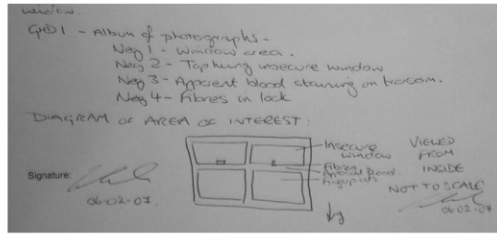 window.
GHD1 - Album of photographs -
Neg 1 - Window area.
Neg 2 - Top hung insecure window
Neg 3 - Apparent blood staining on transom.
Neg 4 - Fibres in lock
DIAGRAM OF AREA OF INTEREST:
Insecure window
Fibres
Apparent blood.
Fingerprints
VIEWED
FROM
INSIDE
NOT TO SCALE
Signature:
06-02-07.
06-02-07.